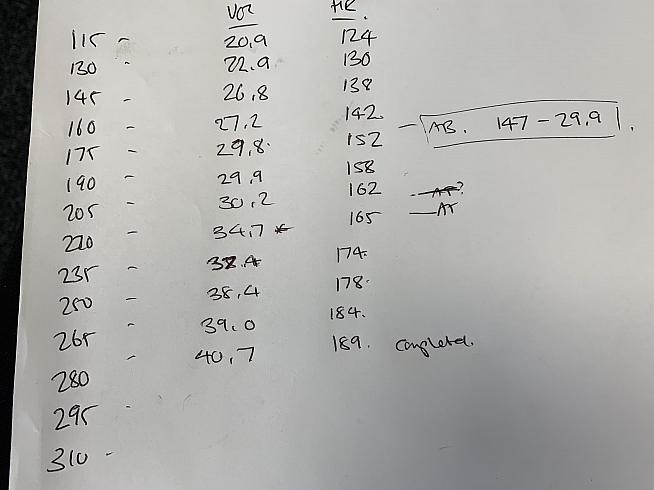 VO2 HR.
115 - 20.9 124
130 - 22.9 130
145 - 26.8 138
160 - 27.2 142
175 - 29.8 152 - AB. 147 - 29.9
190 - 29.9 158
205 - 30.2 162
220 - 34.7 165 - AT
235 - 174
250 - 38.4 178
265 - 39.0 184.
280 - 40.7 189. completed.
295 -
310 -